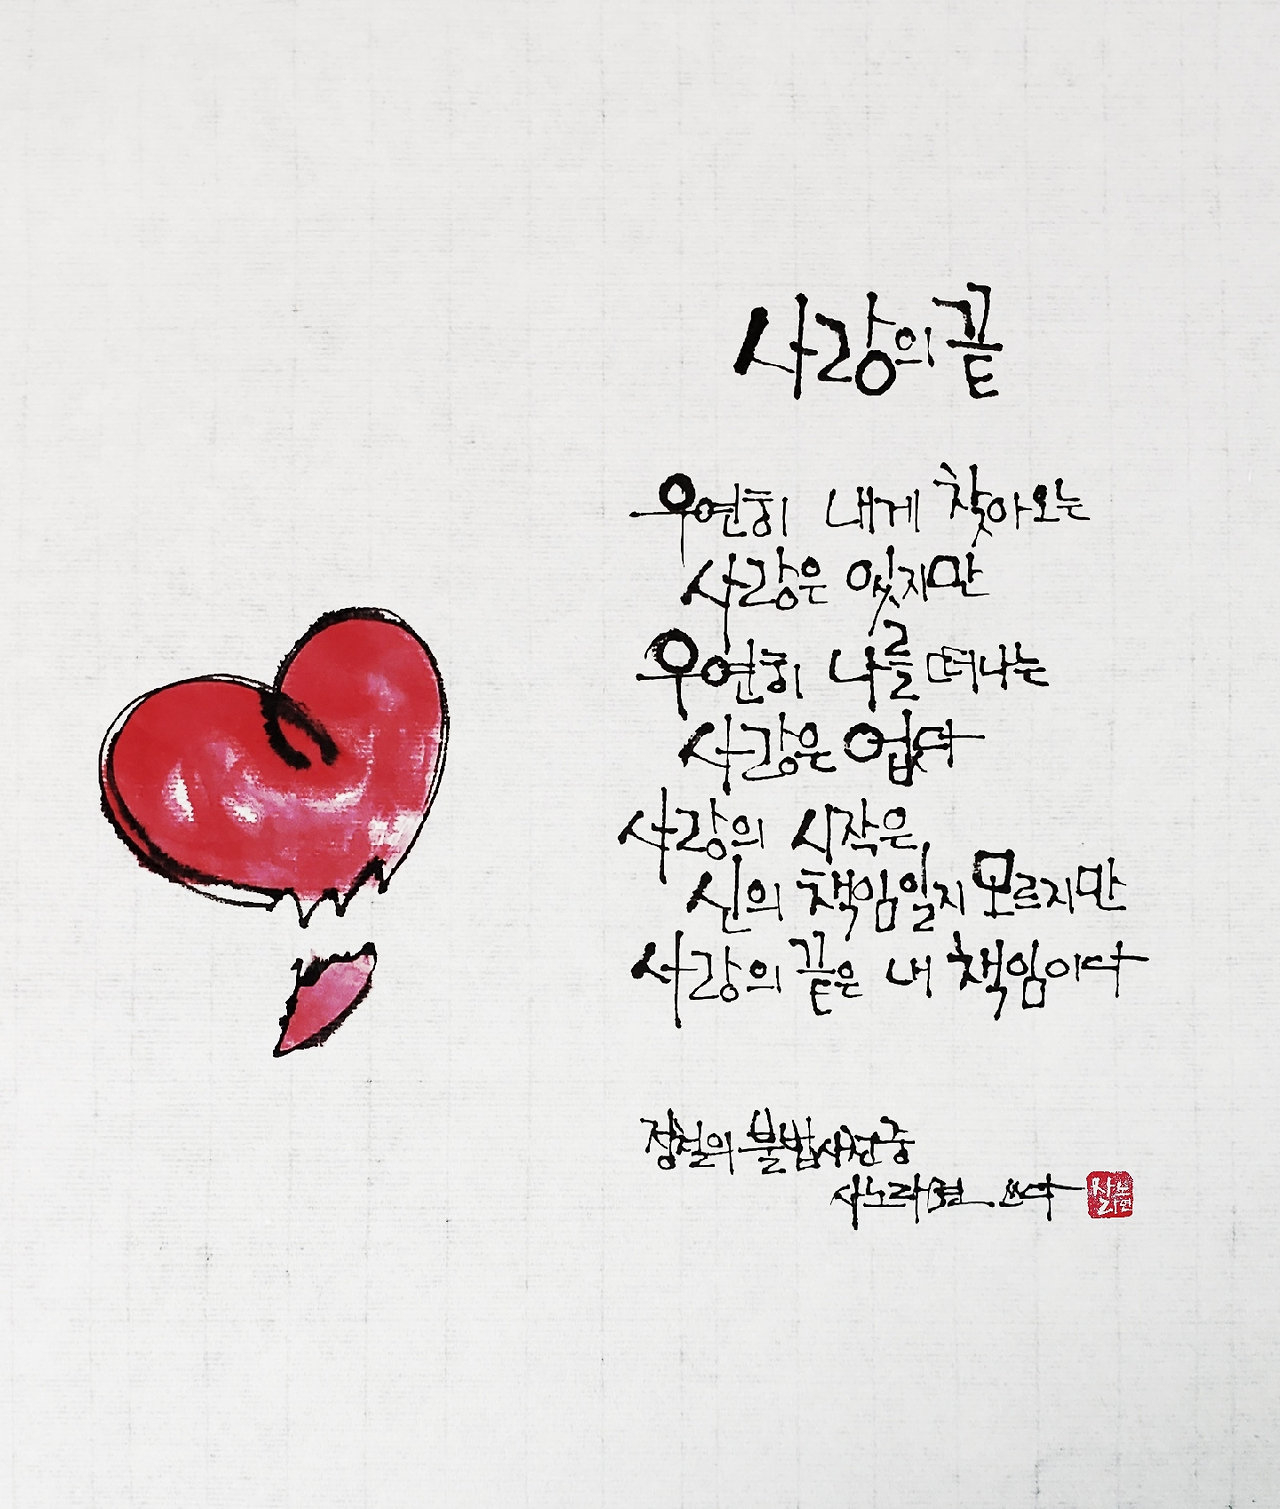 사랑의 끝
우연히 내게 찾아오는
사랑은 있지만
우연히 나를 떠나는
사랑은 없다
사랑의 시작은
신의 책임일지 모르지만
사랑의 끝은 내 책임이다
정철의 불법사전 중
사노라면 쓰다